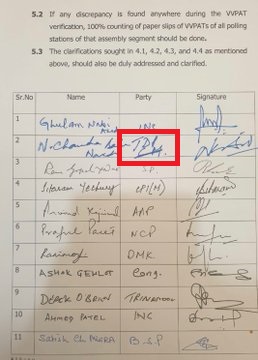 5.2 If any discrepancy is found anywhere during the VVPAT
verification, 100% counting of paper slips of VVPATs of all polling
stations of that assembly segment should be done.
5.3 The clarifications sought in 4.1, 4.2, 4.3, and 4.4 as mentioned
above, should also be duly addressed and clarified.
Sr.No Name Party Signature
1 Ghulam Nabi Azad INC
2 N. Chandra Babu Naidu TDP
3 S.P.
4 Sitaram Yechury CPI(M)
5 AAP
6 Praful Patel NCP
7 DMK
8 ASHOK GEHLOT Cong.
9 DEREK O'BRIEN TRINAMOOL
10 AHMED PATEL INC
11 Satish Ch. MISRA B.S.P